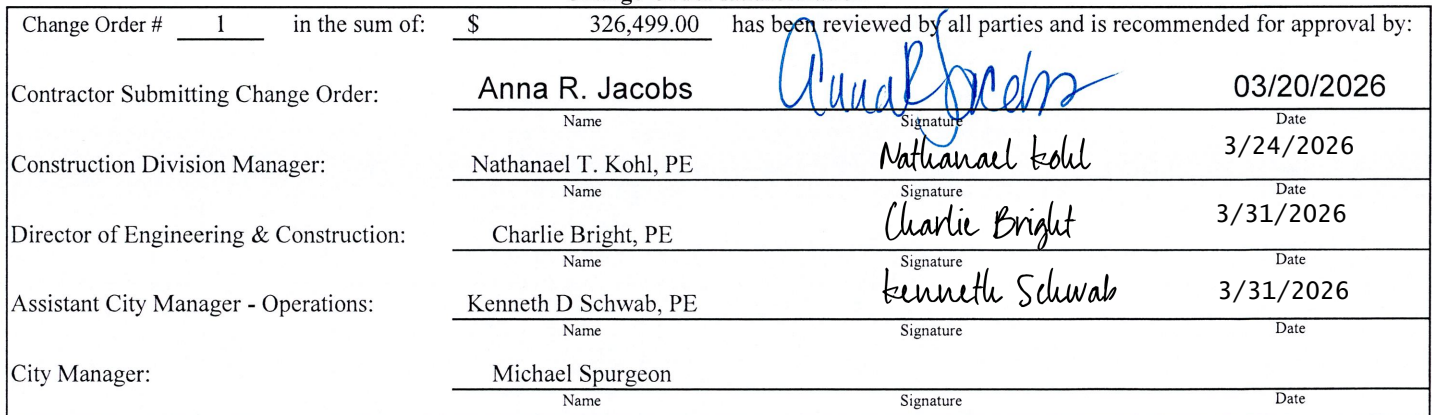 Change Order # 1 in the sum of: $ 326,499.00 has been reviewed by all parties and is recommended for approval by:
Contractor Submitting Change Order: Anna R. Jacobs Anna R Jacobs 03/20/2026
Name Signature Date
Construction Division Manager: Nathanael T. Kohl, PE Nathanael Kohl 3/24/2026
Name Signature Date
Director of Engineering & Construction: Charlie Bright, PE Charlie Bright 3/31/2026
Name Signature Date
Assistant City Manager - Operations: Kenneth D Schwab, PE Kenneth Schwab 3/31/2026
Name Signature Date
City Manager: Michael Spurgeon
Name Signature Date